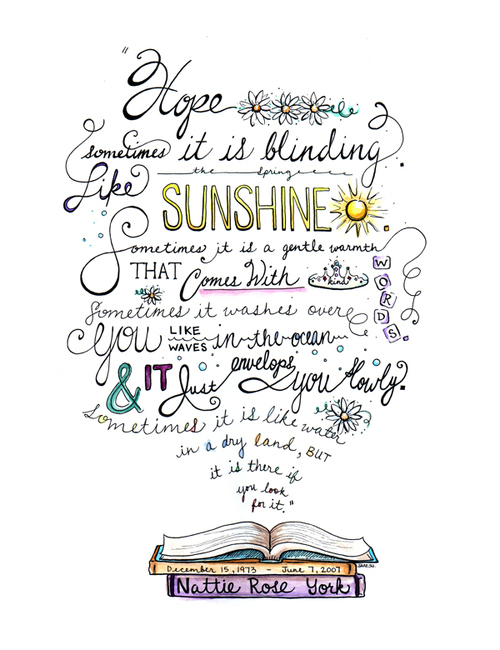 "Hope
sometimes it is blinding.
Like the Spring
SUNSHINE.
Sometimes it is a gentle warmth
THAT Comes With kind WORDS.
Sometimes it washes over
you LIKE WAVES in the ocean
& IT Just envelops you slowly.
Sometimes it is like water
in a dry land, BUT
it is there if
you look
for it."
December 15, 1973 - June 7, 2007
Nattie Rose York